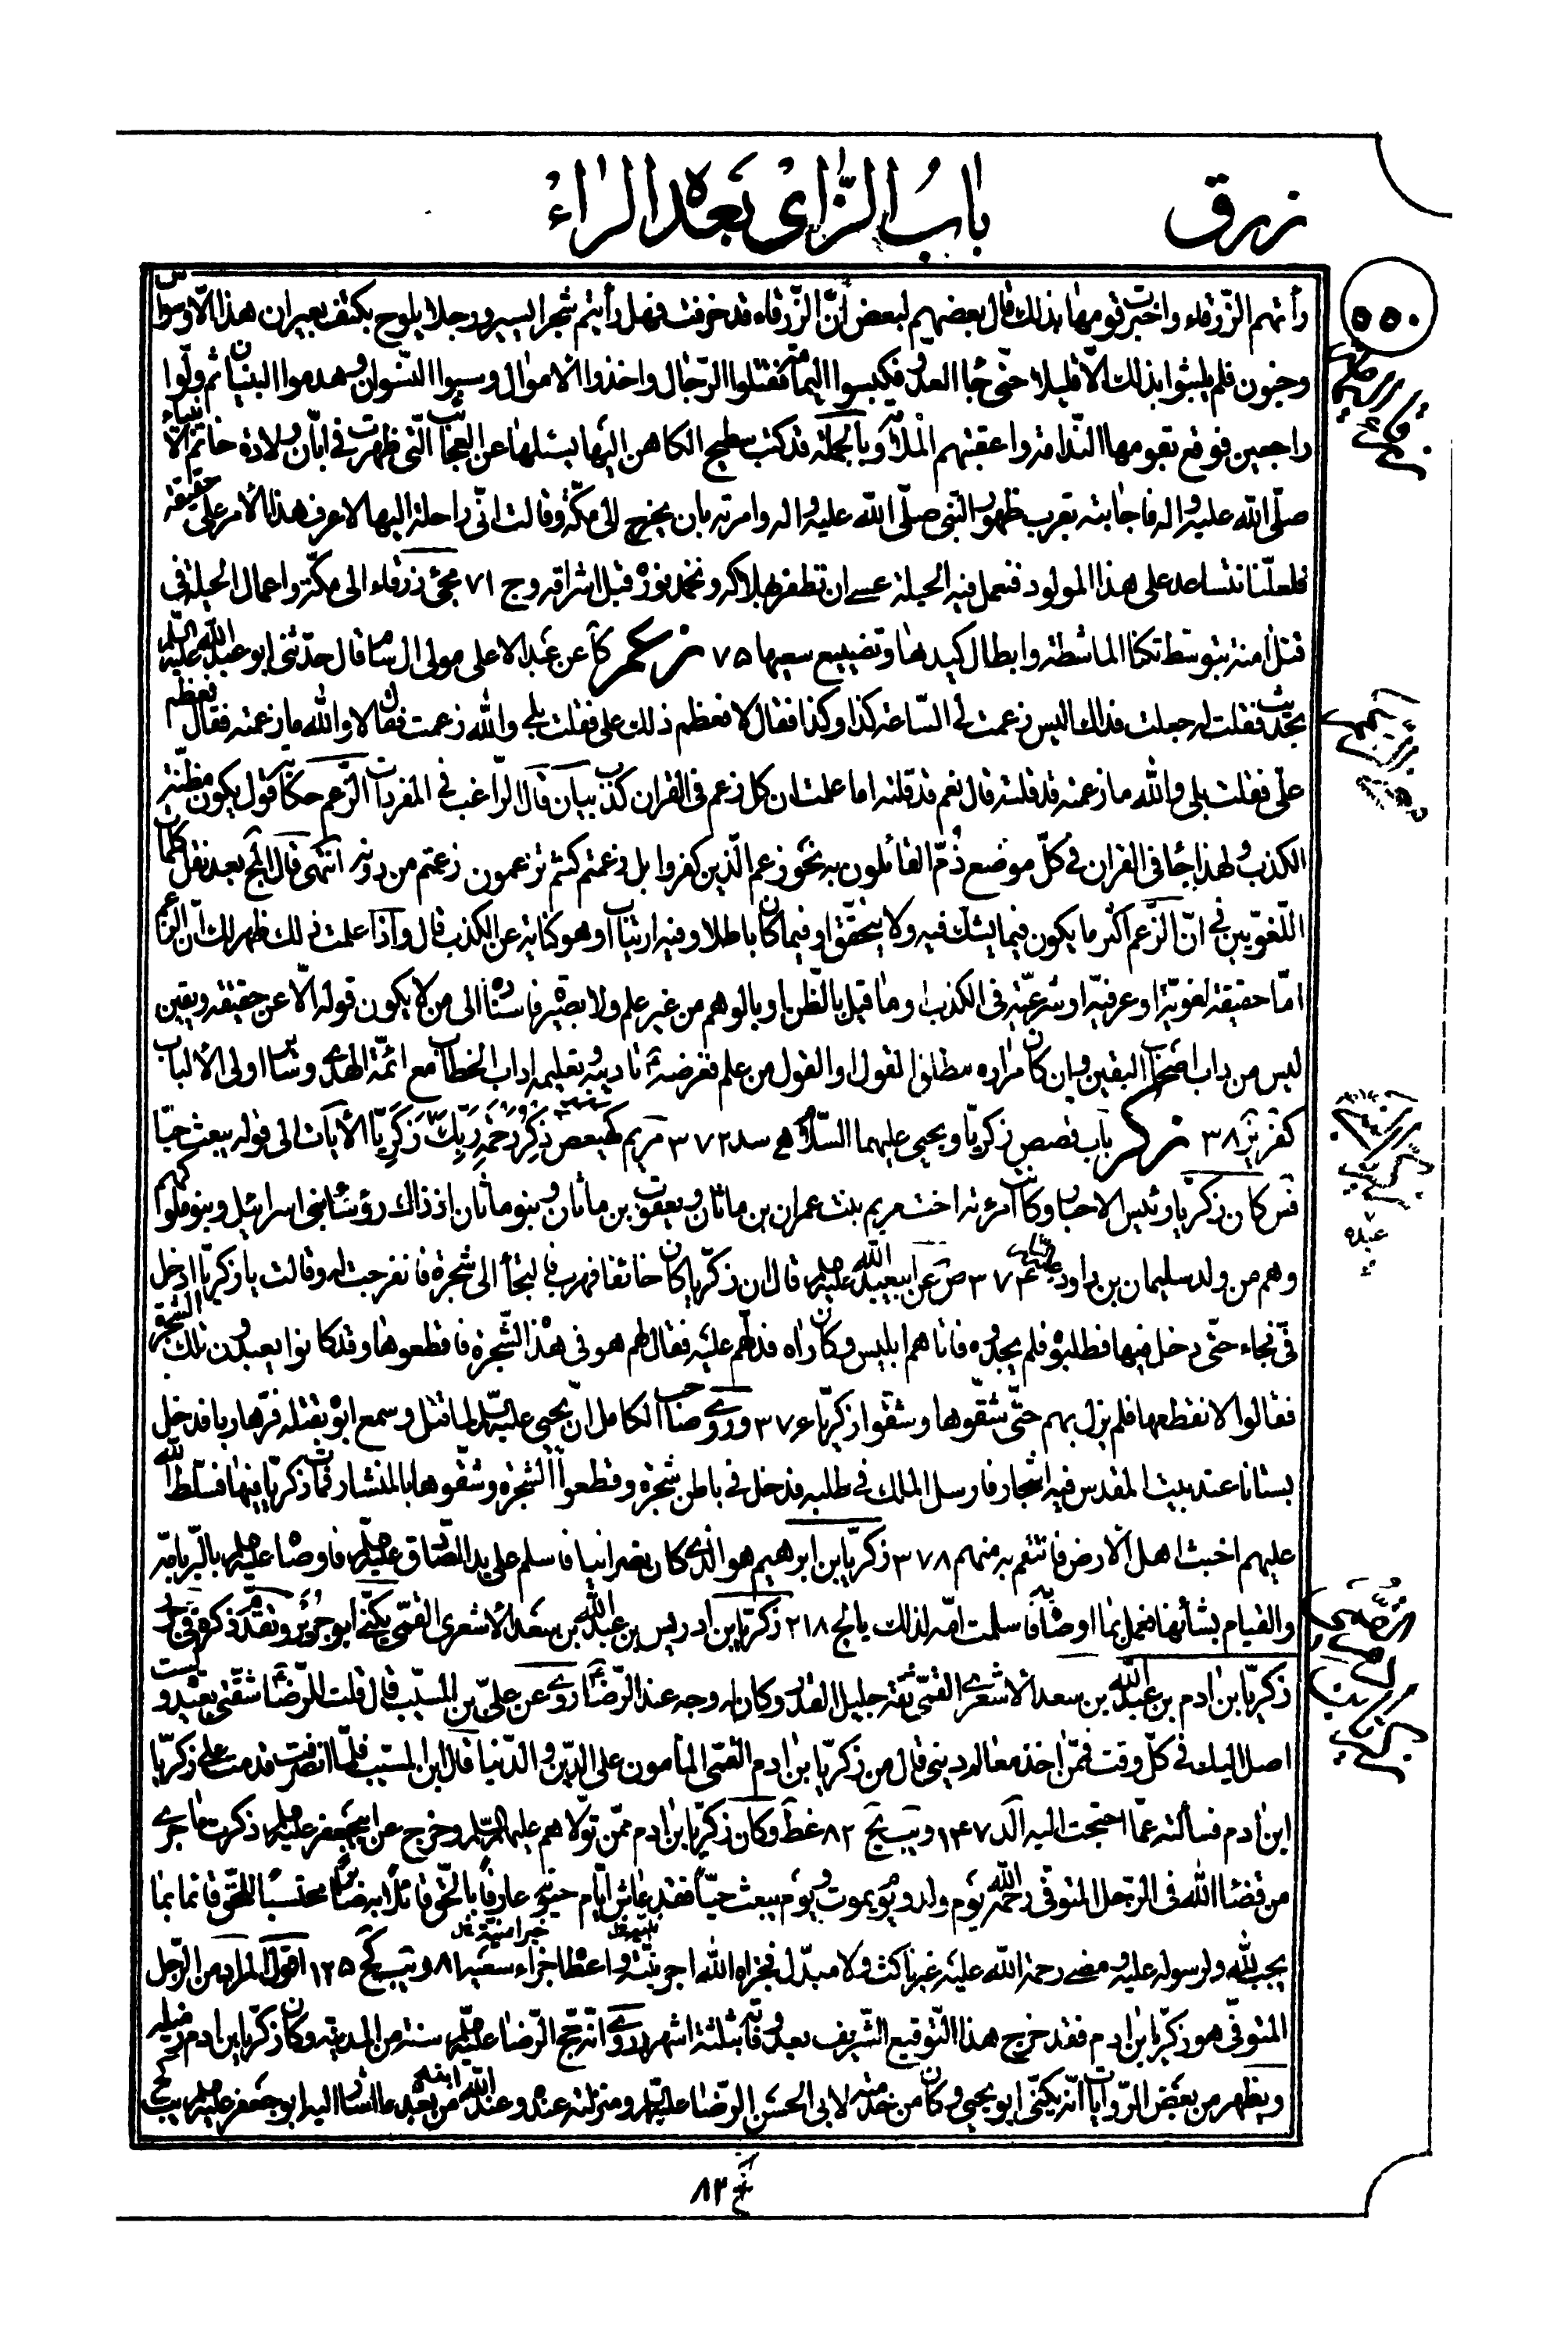 زرق
باب الزّاى بعده الراء
٥٥٠
رأتهم الزّرقاء واخبرت قومها بذلك قال بعضهم لبعض أنّ الزّرقاء قد خرفت فهل رأيتم شجرا يسير ورجلا يلوح بكتف بعير ان هذا الّا وسواس
وجنون فلم يلبثوا بذلك الّا قليلا حتّى جاء العدوّ فكبسوا اليمامة فقتلوا الرّجال واخذوا الاموال وسبوا النّسوان وهدموا البنيان ثم ولّوا
راجعين فوقع بقومها النّدامة واعقبتهم الملامة وبالجملة قد كتب سطيح الكاهن اليها يسئلها عن العجائب الّتى ظهرت فى ابّان ولادة خاتم الانبياء
صلّى الله عليه واله فاجابته بقرب ظهور النّبى صلّى الله عليه واله وامرته بان يخرج الى مكّة وقالت انّى راحلة اليها لاعرف هذا الأمر على حقيقته
فلعلّنا نتساعد على هذا المولود فنعمل فيه الحيلة عسى ان نظفر بهلاكه ونخمد نوره قبل اشراقه وج ٧١ مجئ زرقاء الى مكّة واعمال الحيلة فى
قتل امنة بتوسّط تكنا الماشطة وابطال كيدها وتضييع سعيها ٧٥ زعم كا عن عبد الاعلى مولى ال سام قال حدّثنى ابو عبد الله عليه السلام
بحديث فقلت له جعلت فداك اليس زعمت لى السّاعة كذا وكذا فقال لا فعظم ذلك علىّ فقلت بلى والله زعمت فقال لا والله ما زعمته فقال فعظم
علىّ فقلت بلى والله ما زعمته قد قلته قال نعم قد قلته اما علمت ان كل زعم فى القران كذب بيان قال الرّاغب فى المفردات الزّعم حكاية قول يكون مظنّة
الكذب ولهذا جاء فى القران فى كلّ موضع ذمّ القائلون به نحو زعم الّذين كفروا بل زعمتم كنتم تزعمون زعمتم من دونه انتهى قال المج بعد نقل كلمات
اللّغويّين فى انّ الزّعم اكثر ما يكون فيما يشك فيه ولا يتحقّق او فيما كان باطلا وفيه ارتياب او هو كناية عن الكذب قال واذا علمت ذلك ظهر لك انّ الزعم
امّا حقيقة لغويّة او عرفيّة او شرعيّة فى الكذب او ما قيل بالظّن او بالوهم من غير علم ولا بصيرة فاسناده الى من لا يكون قوله الّا عن حقيقة ويقين
ليس من داب اصحاب اليقين وان كان مراده مطلق القول او القول من علم فغرضه تاديبه وتعليمه اداب الخطاب مع ائمّة الهدى وساير اولى الألباب
كفر ٣٨ زكر باب قصص زكريّا ويحيى عليهما السّلام ه سد ٣٧٢ مريم كهيعص ذكر رحمة ربّك زكريّا الأيات الى قوله يبعث حيّا
فس كان زكريّا رئيس الاحبار وكانت امرأته اخت مريم بنت عمران بن ماثان ويعقوب بن ماثان وبنو ماثان اذ ذاك رؤساء بنى اسرائيل وبنو ملوكهم
وهم من ولد سليمان بن داود عليهما السلام ٣٧٤ ص عن ابيعبد الله عليه السلام قال ان زكريّا كان خائفا فهرب فالتجأ الى شجرة فانفرجت له وقالت يا زكريّا ادخل
فىّ فجاء حتّى دخل فيها فطلبوه فلم يجدوه فاتاهم ابليس وكان راه فدلّهم عليه فقال لهم هو فى هذه الشّجرة فاقطعوها وقد كانوا يعبدون تلك الشجرة
فقالوا لا نقطعها فلم يزل بهم حتّى شقّوها وشقّوا زكريّا ٣٧۶ وروى صاحب الكامل انّ يحيى عليه السلام لما قتل وسمع ابوه بقتله فرّ هاربا فدخل
بستانا عند بيت المقدس فيه اشجار فارسل الملك فى طلبه فدخل فى باطن شجرة وقطعوا الشّجرة وشقّوها بالمنشار فمات زكريّا فيها فسلّط الله
عليهم اخبث اهل الأرض فانتقم به منهم ٣٧٨ زكريّا بن ابرهيم هو الذى كان نصرانيا فاسلم على يد الصّادق عليه السلام فاوصاه عليه السلام بالبرّ بامّه
والقيام بشأنها فعمل بما اوصاه به فاسلمت امّه لذلك يا يج ٢١٨ زكريّا بن ادريس بن عبد الله بن سعد الأشعرى القمى يكنّى ابو جرير وتقدّم ذكره فى جرر
زكريّا بن ادم بن عبد الله بن سعد الأشعرى القمّى ثقة جليل القدر وكان له وجه عند الرّضا روى عن علىّ بن المسيّب قال قلت للرّضا شقّتى بعيدة ولست
اصل اليك فى كلّ وقت فممّن اخذ معالم دينى قال من زكريّا بن ادم القمّى المأمون على الدّين والدّنيا قال ابن المسيّب فلمّا انصرفت قدمت على زكريّا
ابن ادم فسألته عمّا احتجت اليه الد ١٤٧ ويب يج ٨٢ غط وكان زكريّا بن ادم ممّن تولّاهم عليهم السّلام وخرج عن ابيجعفر عليه السلام ذكرت ما جرى
من قضاء الله فى الرّجل المتوفّى رحمه الله يوم ولد ويوم يموت ويوم يبعث حيّا فقد عاش ايّام حيوته عارفا بالحقّ قائلا به صابرا محتسبا للحقّ قائما بما
يجب لله ولرسوله عليه ومضى رحمة الله عليه غير ناكث ولا مبدّل فجزاه الله اجر نيّته واعطاه جزاء سعيه ٨١ ويب كج ١٢٥ اقول المراد من الرّجل
المتوفّى هو زكريّا بن ادم فقد خرج هذا التّوقيع الشّريف بعد وفاته بثلثة اشهر وروى انّه حجّ الرّضا عليه السلام سنة من المدينة وكان زكريّا بن ادم زميله
ويظهر من بعض الرّوايات انّه يكنّى ابو يحيى وكان من خدمته لابى الحسن الرّضا عليه السلام ومنزلته عنده وعند ابنه من بعده ما اشار اليه ابو جعفر عليه السلام يب كج
٨٣